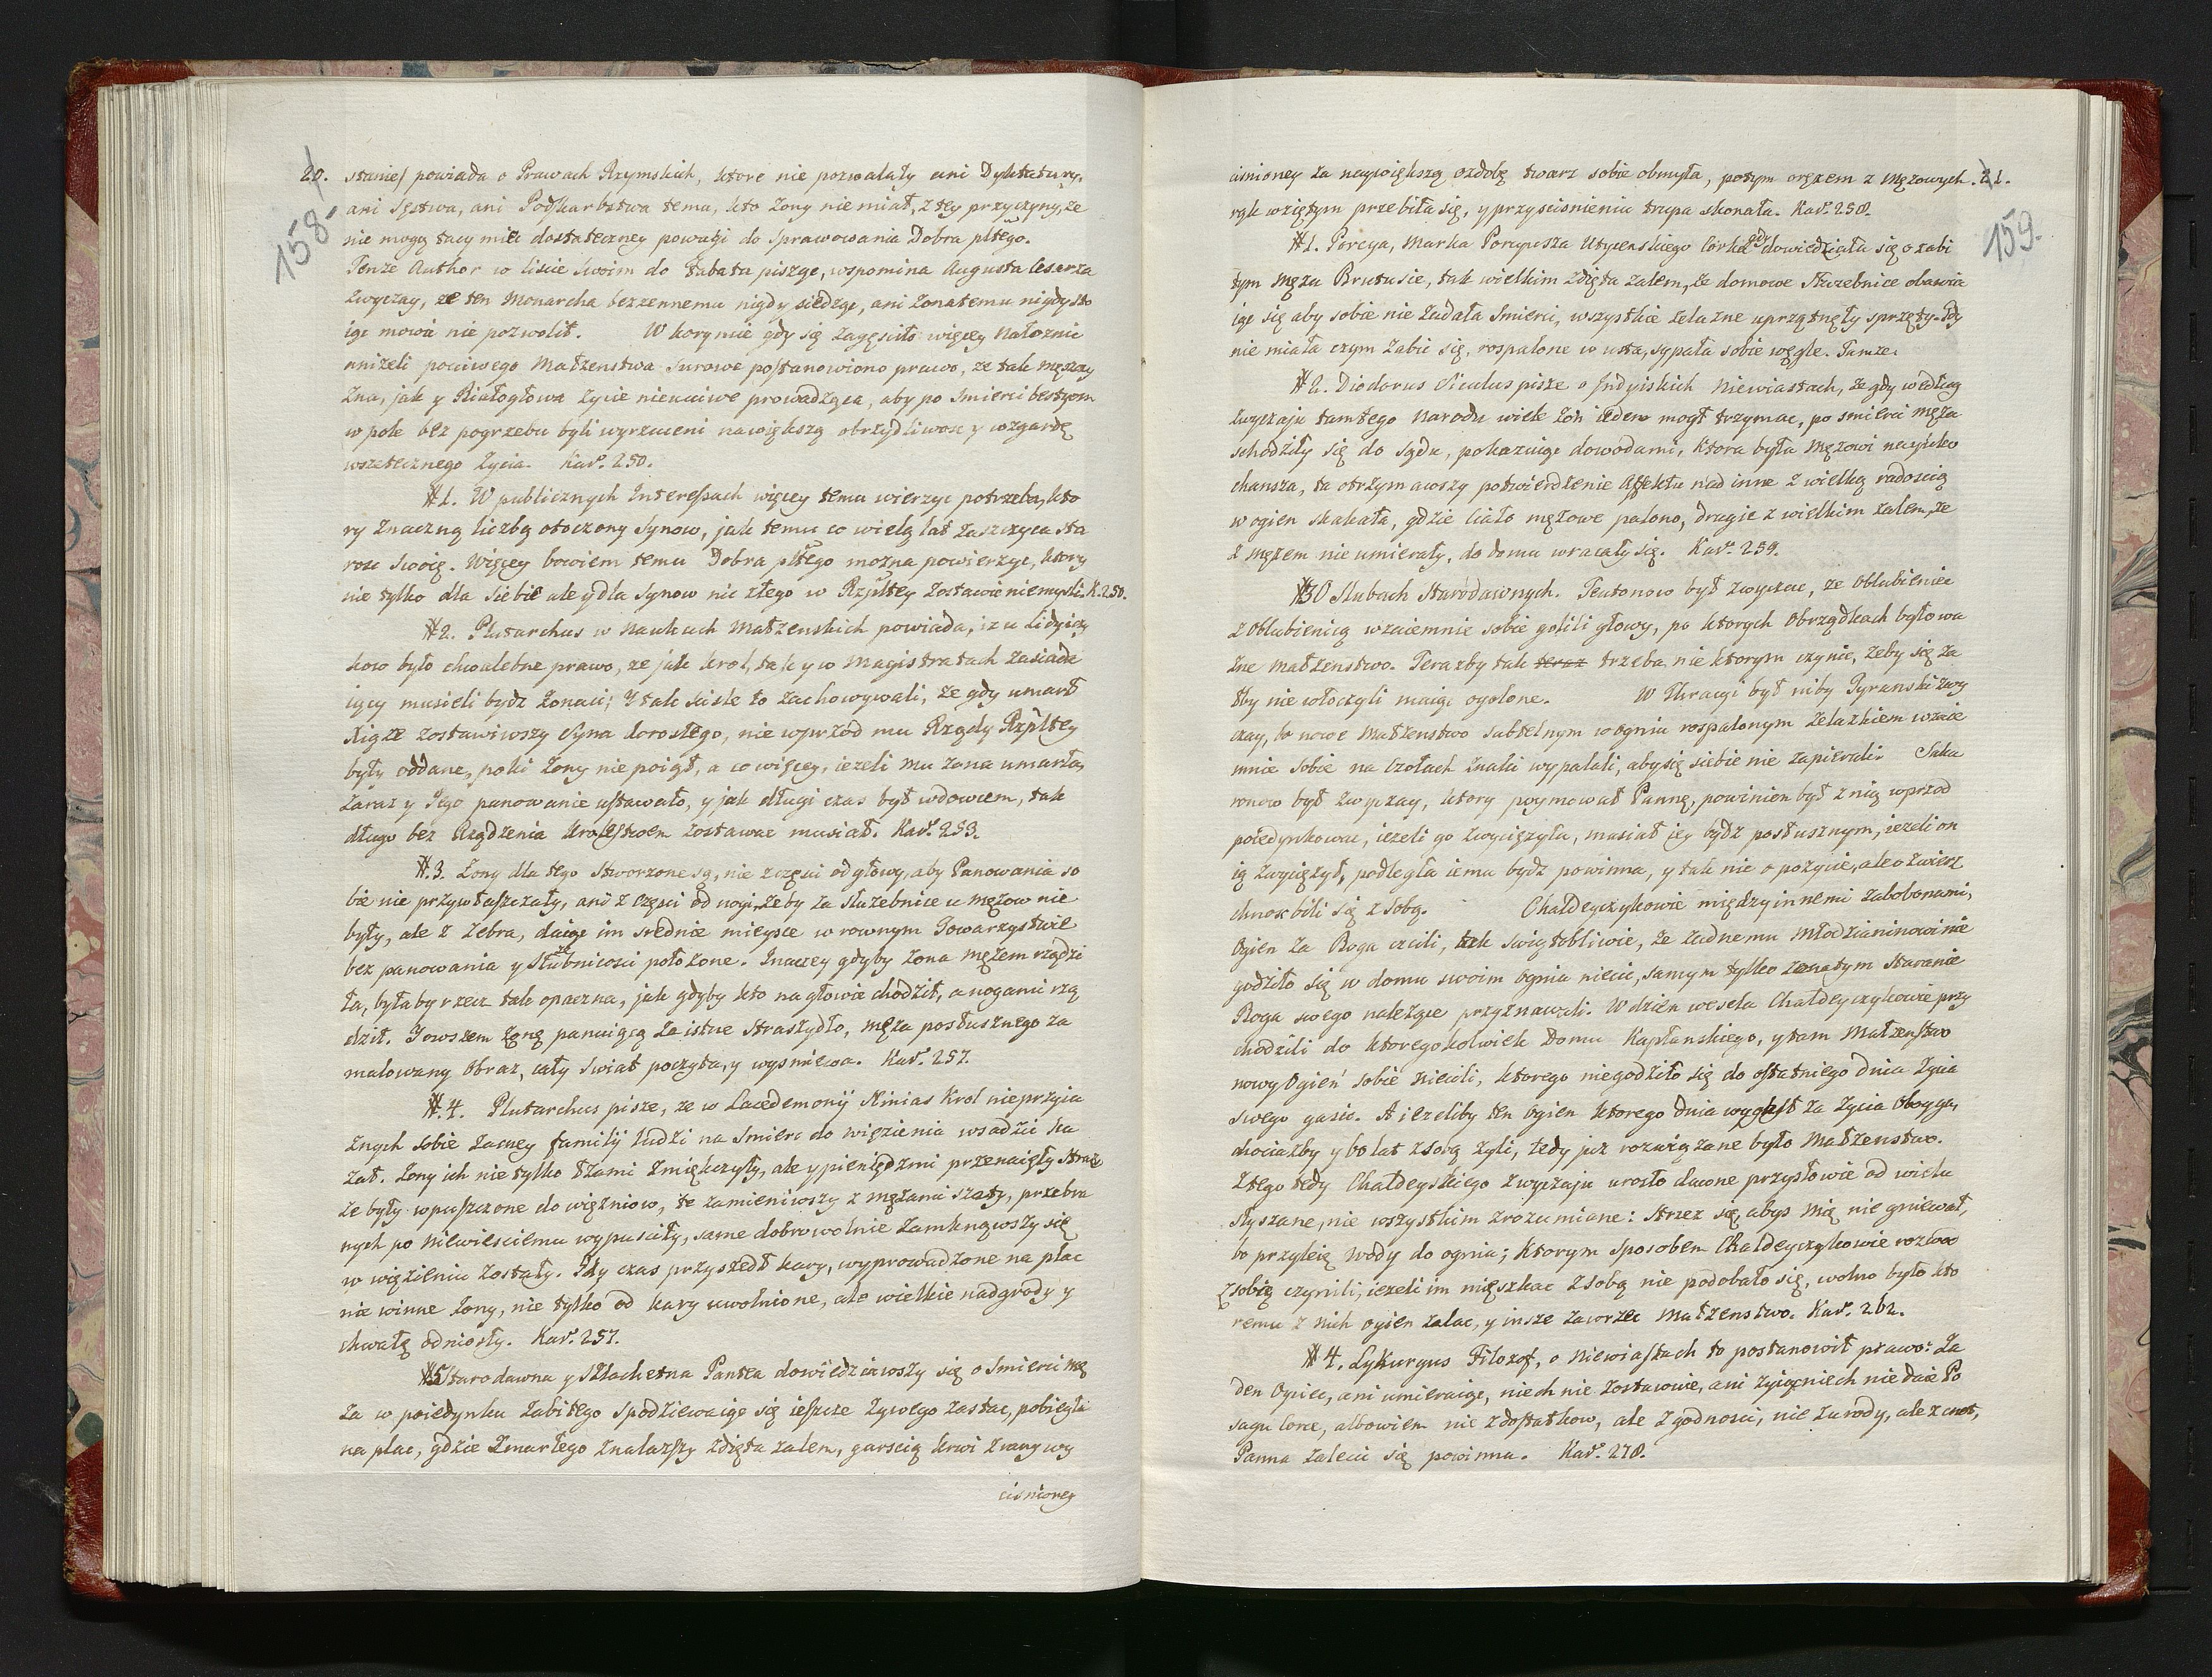 20. stanies powiada o Prawach Rzymskich, ktore nie pozwalały ani Dyktatury,
158.
ani Sęstwa, ani Podskarbstwa temu, kto żony nie miał, z tey przyczyny, że
nie mogą tacy mieć dostateczney powagi do sprawowania Dobra pltego.
Tenze Author w liscie swoim do tabata piszge, wspomina Augusta Cesarza
zwyczay, że ten Monarcha bezzennemu nigdy siedzge, ani żonatemu nigdy sto
ige mowic nie pozwolił. W koryncie gdy się zagęsciło więcey nałoznic
anizeli pociwego Małzenstwa Surowe postanowiono prawo, ze tak męszczy
zna, jak y Białogłowa życie nieuciwe prowadząca, aby po smierci bestyom
w pole bez pogrzebu byli wyrzuceni nawiększą obrzydliwosc y wzgardę
wszetecznego życia. Kar. 250.
#1. W publicznych Interessach więcey temu wierzyc potrzeba, kto
ry znaczną liczbą otoczony Synow, jak temu co wielą lat zaszczyca sta
rosc swoię. Więcey bowiem temu Dobra pltego mozna powierzyc, ktory
nie tylko dla siebie ale y dla Synow nic złego w Rzpltey zostawic niemysli. K. 250.
#2. Plutarchus w Naukach Małzenskich powiada, iz u Lidyiczy
kow było chwalebne prawo, ze jak krol, tak y w Magistratach zasiada
iący musieli bydz żonaci; Y tak scisle to zachowywali, że gdy umarł
Xiąze zostawiwszy Syna dorosłego, nie wprzod mu Rządy Rzpltey
były oddane, poki żony nie poiął, a co więcey, iezeli mu żona umarła,
zaraz y Jego panowanie ustawało, y jak długi czas był wdowcem, tak
długo bez Rządzenia krolestwem zostawac musiał. Kar. 253.
#.3. Żony dla tego stworzone są, nie z częsci od głowy, aby Panowania so
bie nie przywłaszczały, ani z częsci od nogi, żeby za służebnice u mężow nie
były, ale z żebra, daige im srednie mieysce w rownym Towarzystwie
bez panowania y służebnicosci położone. Inaczey gdyby żona mężem rządzi
ła, byłaby rzecz tak opaczna, jak gdyby kto na głowie chodził, a nogami rzą
dził. Jowszem żonę panuiącą za istne straszydło, męża posłusznego za
malowany obraz, cały swiat poczyta, y wysmiewa. Kar. 257.
#.4. Plutarchus pisze, ze w Lacedemonij Minias Krol nieprzyia
znych sobie zacney familij ludzi na smierc do więzienia wsadzic ka
zał. Żony ich nie tylko łzami zmiękczyły, ale y pieniędzmi przenaięły straż
że były wpuszczone do więzniow, te zamieniwszy z mężami szaty, przebra
nych po niewiesciemu wypuscity, same dobrowolnie zamknąwszy się
w więzieniu zostały. Gdy czas przyszedł kary, wyprowadzone na plac
nie winne żony, nie tylko od kary uwolnione, ale wielkie nadgrody y
chwałę odniosły. Kar. 257.
#5 Starodawna y Szlachetna Pantea dowiedziawszy się o smierci mę
ża w poiedynku zabitego spodziewaige się ieszcze żywego zastac, pobiegła
na plac, gdzie zmarłego znalazszy zdięta żalem, garscią krwi z rany wy
cisnioney
cisnioney za naywiększą ozdobę twarz sobie obmyła, potym orężem z mężowych 21.
rąk wziętym przebiła się, y przyscisnieniu trupa skonała. Kar. 258.
159.
#1. Porcya, Marka Porcyusza Utyceńskiego Corka gdy dowiedziała się o zabi
tym mężu Brutusie, tak wielkim zdięta żalem, że domowe Służebnice obawia
ige się aby sobie nie zadała smierci, wszystkie żelazne uprzątnęły sprzęty. Gdy
nie miała czym zabic się, rospalone w usta, sypała sobie węgle. Tamze.
#2. Diodorus Siculus pisze o Indyiskich Niewiastach, że gdy według
zwyczaju tamtego Narodu wiele żon ieden mogł trzymac, po smierci męża
schodziły się do Sądu, pokazuige dowodami, ktora była mężowi nayuko
chansza, ta otrzymawszy potwierdzenie Affektu nad inne z wielką radoscią
w ogien skakała, gdzie ciało mężowe palono, drugie z wielkim żalem, że
z mężem nie umierały, do domu wracały się. Kar. 259.
#3 O Slubach Starodawnych. Teutonow był zwyczac, ze Oblubieniec
z Oblubienicą wzaiemnie sobie golili głowy, po ktorych Obrządkach było wa
żne małżenstwo. Terazby tak teraz trzeba niektorym czynic, żeby się za
łby nie włoczyli maige ogolone. W Thracyi był niby Tyranski zwy
czay, bo nowe małżenstwo subtelnym w ogniu rospalonym żelazkiem wzaie
mnie sobie na czołach znaki wypalali, aby się siebie nie zapierali. Saka
ronow był zwyczay, ktory poymował Pannę, powinien był z nią wprzod
poiedynkowac, iezeli go zwyciężyła, musiał iey bydz posłusznym, iezeli on
ią zwyciężył, podległa iemu bydz powinna, y tak nie o pożycie, ale o zwierz
chnosc bili się z sobą. Chaldeyczykowie między innemi zabobonami,
Ogien za Boga czcili, tak swiątobliwie, że żadnemu młodzianinowi nie
godziło się w domu swoim ognia niecic, samym tylko żonatym staranie
Boga swego należące przyznawali. W dzien wesela Chaldeyczykowie przy
chodzili do ktoregokolwiek Domu Kapłanskiego, y tam Małżenstwo
nowy Ogień sobie niecili, ktorego niegodziło się do ostatniego dnia życia
swego gasic. A iezeliby ten ogien ktorego dnia wygasł za życia Oboyga,
chociażby y 60 lat z sobą żyli, tedy już rozwiązane było Małżenstwo.
Z tego tedy Chaldeyskiego zwyczaju urosło dawne przysłowie od wielu
słyszane, nie wszystkim zrozumiane: Strzez się, abys mię nie gniewał,
bo przyleię wody do ognia; Ktorym sposobem Chaldeyczykowie rozwod
z sobą czynili, iezeli im mięszkac z sobą nie podobało się, wolno było kto
remu z nich ogien zalac, y insze zawrzec Małżenstwo. Kar. 262.
#4. Lykurgus Filozof, o niewiastach to postanowił prawo: Ża
den Ociec, ani umieraige, niech nie zostawuie, ani żyiąc niech nie daie Po
sagu Corce, albowiem nie z dostatkow, ale z godnosci, nie z urody, ale z cnot,
Panna zaleciċ się powinna. Kar. 278.